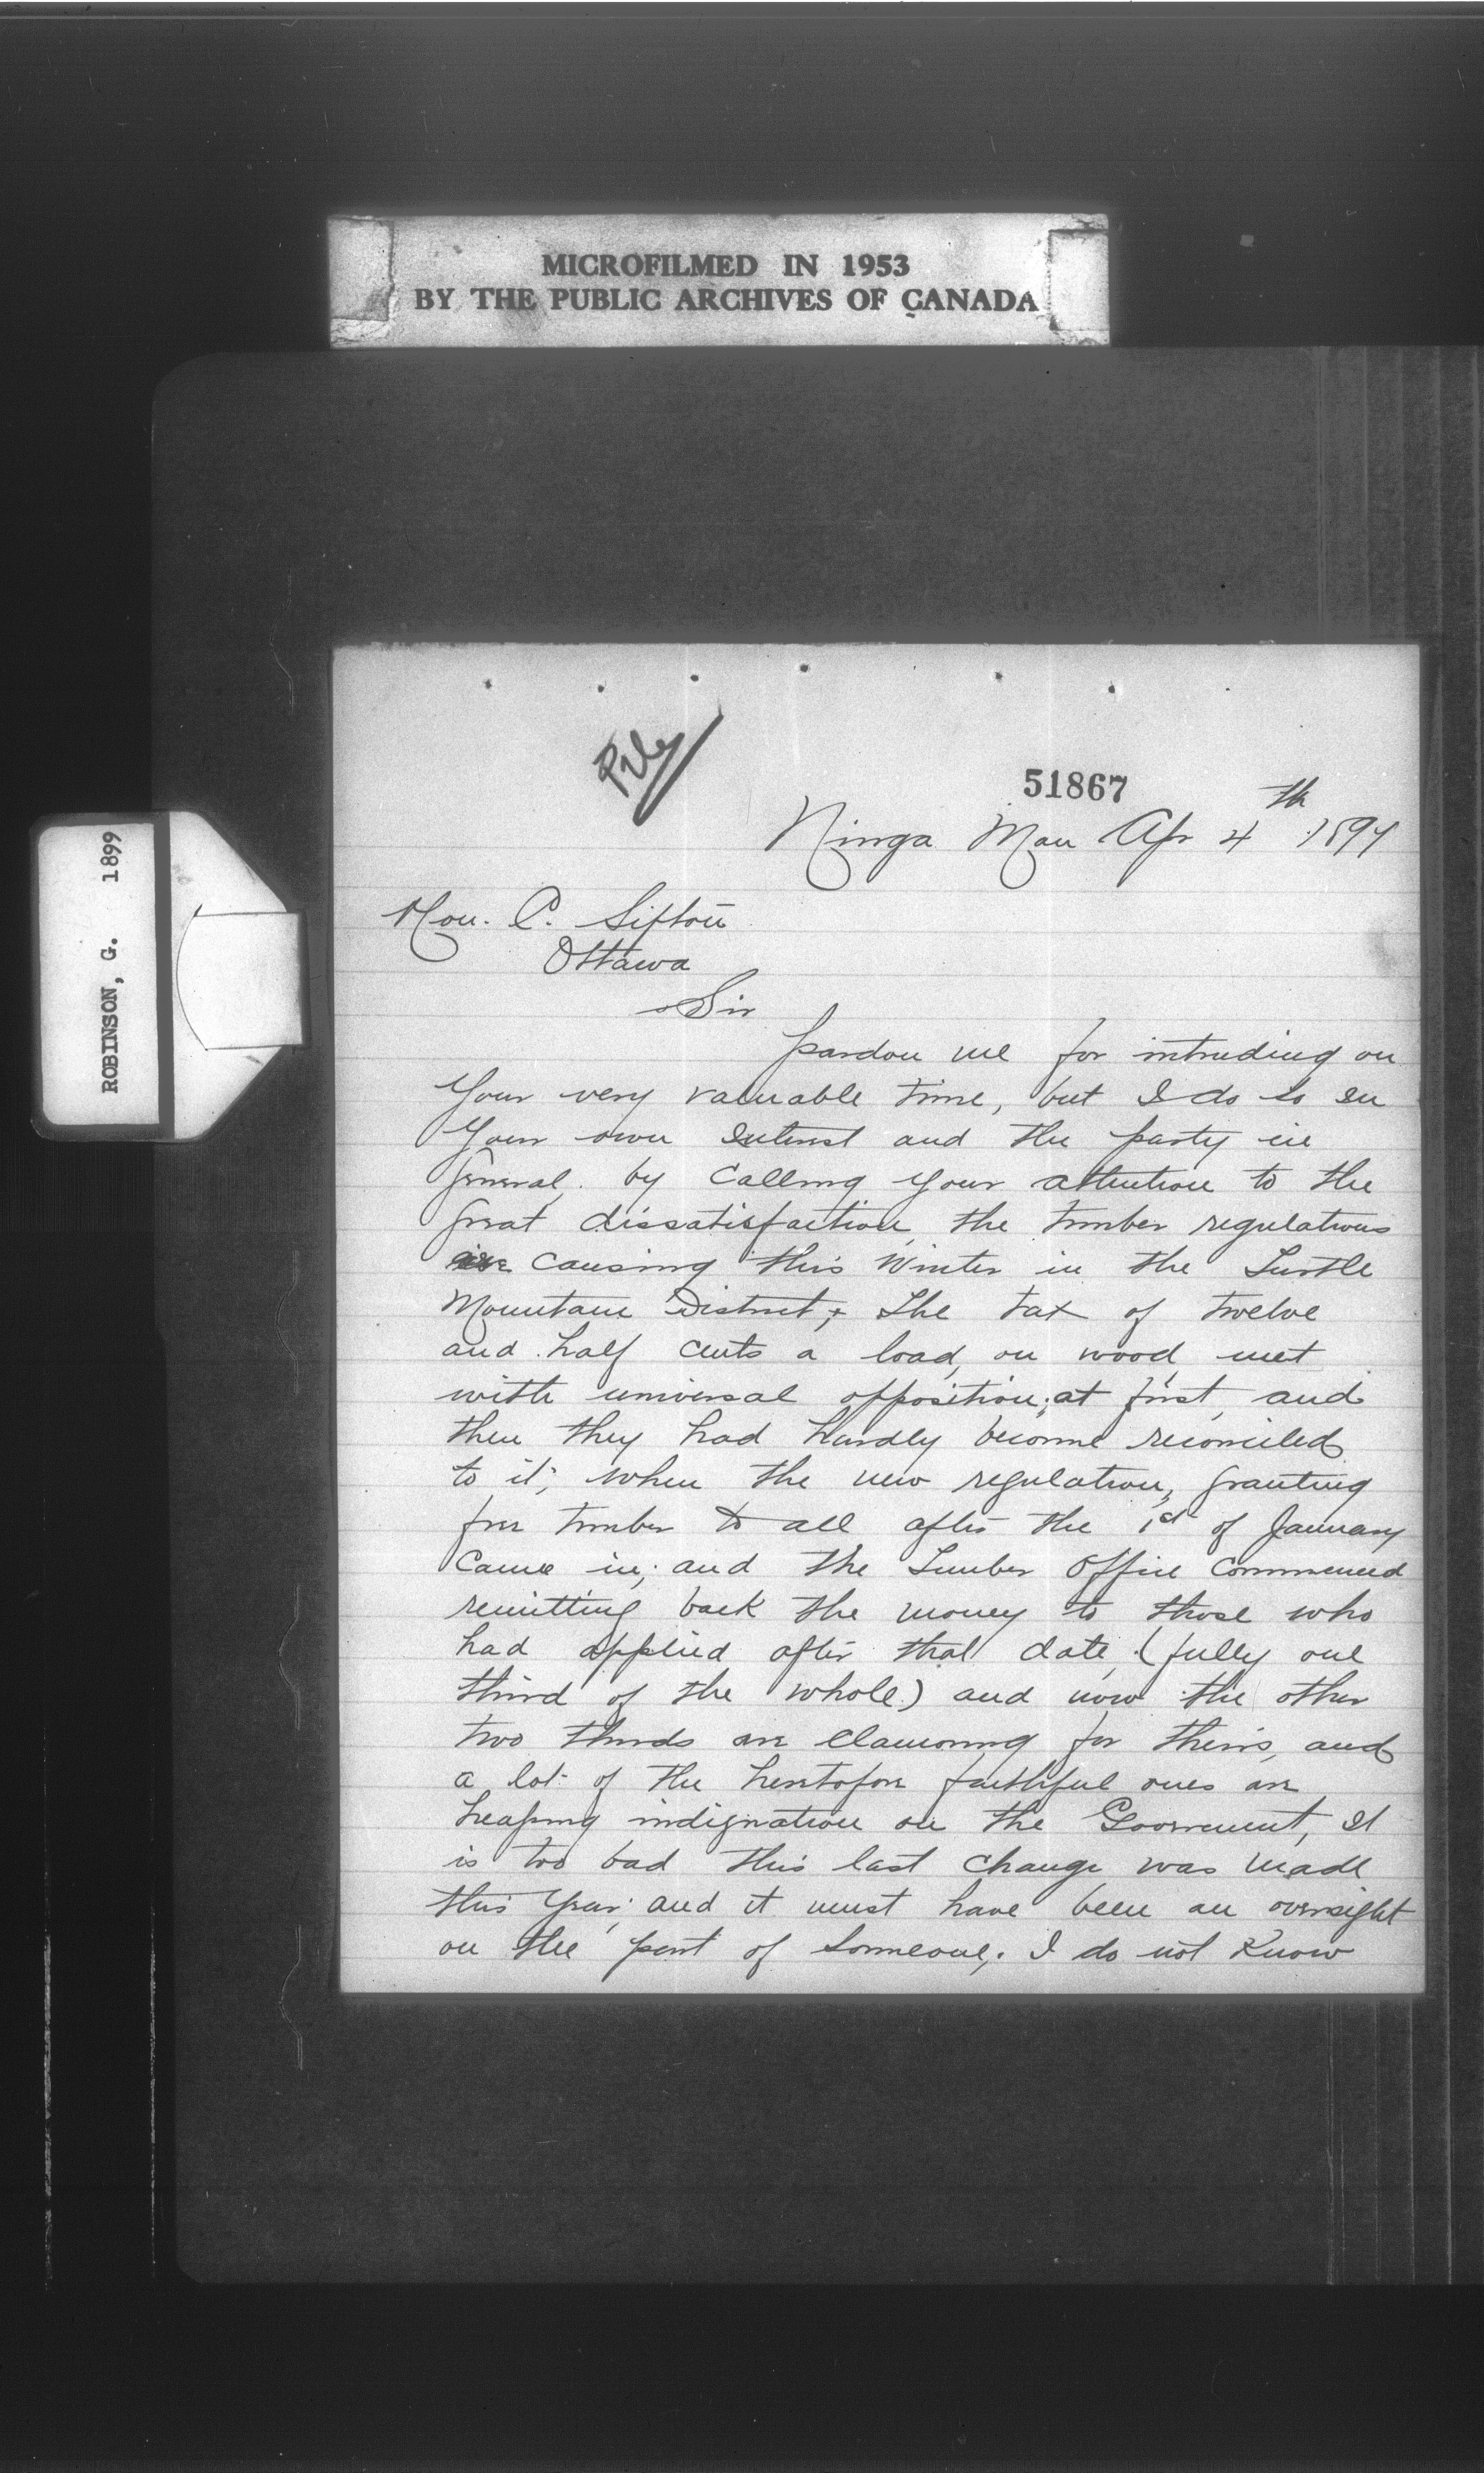 MICROFILMED IN 1953
BY THE PUBLIC ARCHIVES OF CANADA
ROBINSON, G. 1899
51867
Ninga Man Apr 4th 1899
Hon. C. Sifton
Ottawa
Sir
pardon me for intruding on
Your very valuable time, but I do so in
Your own interest and the party in
general, by calling your attention to the
great dissatisfaction, the timber regulations
are causing this Winter in the Turtle
Mountain District, + The tax of twelve
and half cents a load, on wood met
with universal opposition; at first, and
then they had hardly become reconciled
to it; when the new regulation, granting
free timber to all after the 1st of January
Came in; and the Timber Office Commenced
remitting back the money to those who
had applied after that date, (fully one
third of the whole) and now the other
two thirds are clamoring for theirs, and
a lot of the heretofore faithful ones are
heaping indignation on the Government, It
is too bad this last change was made
this Year; and it must have been an oversight
on the part of Someone,. I do not Know